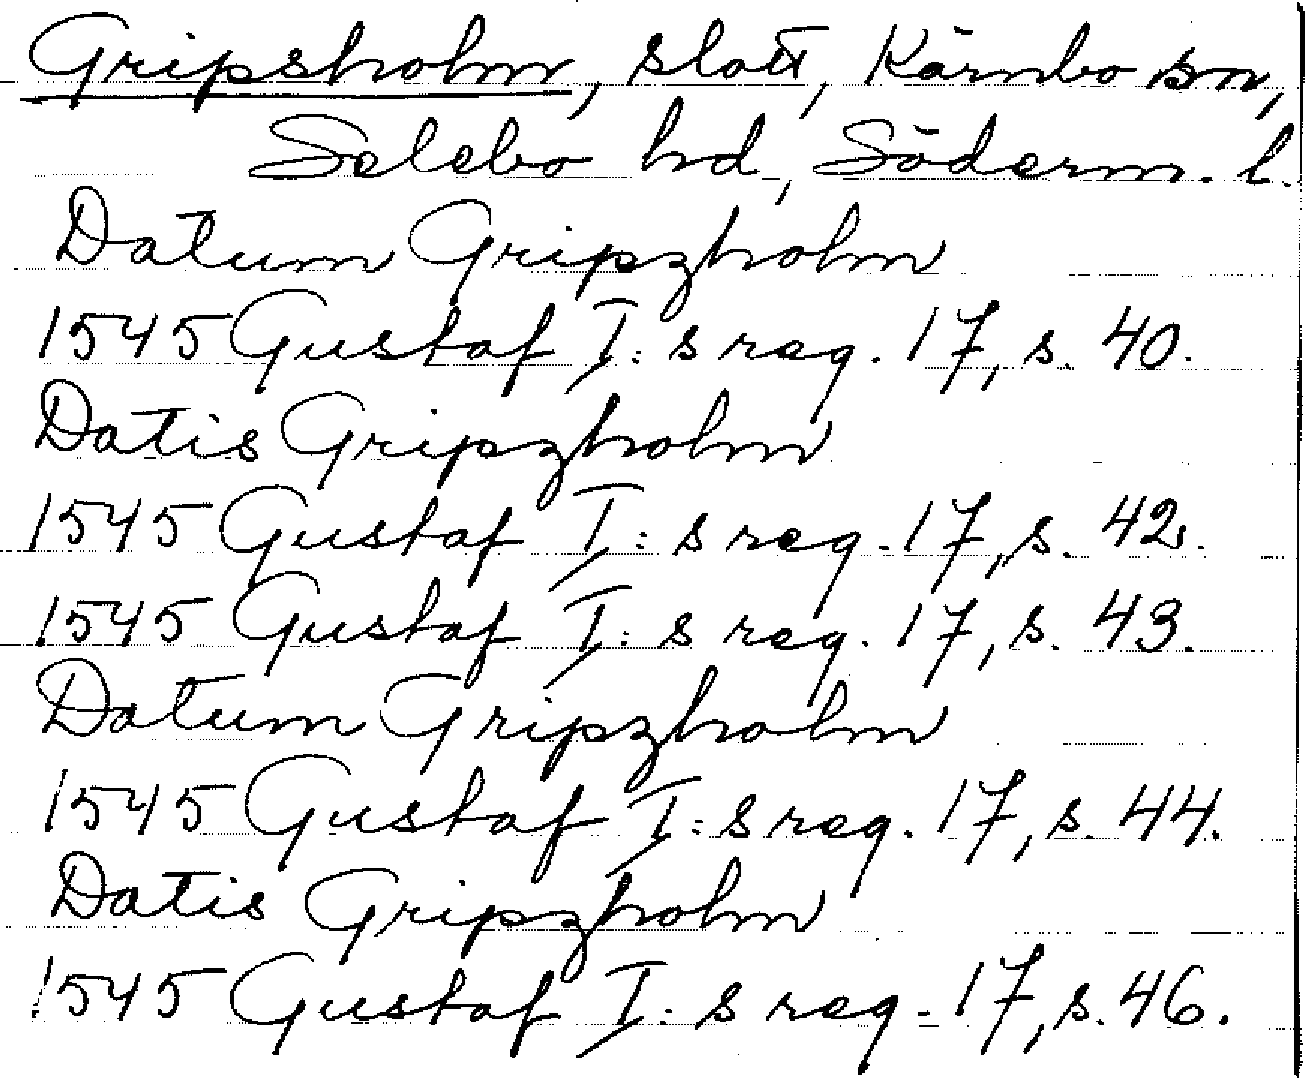 Gripsholm, slott, Kärnbo sn,
Selebo hd, Söderm. l.
Datum Gripzholm
1545 Gustaf I:s reg. 17, s. 40.
Datis Gripzholm
1545 Gustaf I:s reg. 17, s. 42.
1545 Gustaf I:s reg. 17, s. 43.
Datum Gripzholm
1545 Gustaf I:s reg. 17, s. 44.
Datis Gripzholm
1545 Gustaf I:s reg. 17, s. 46.